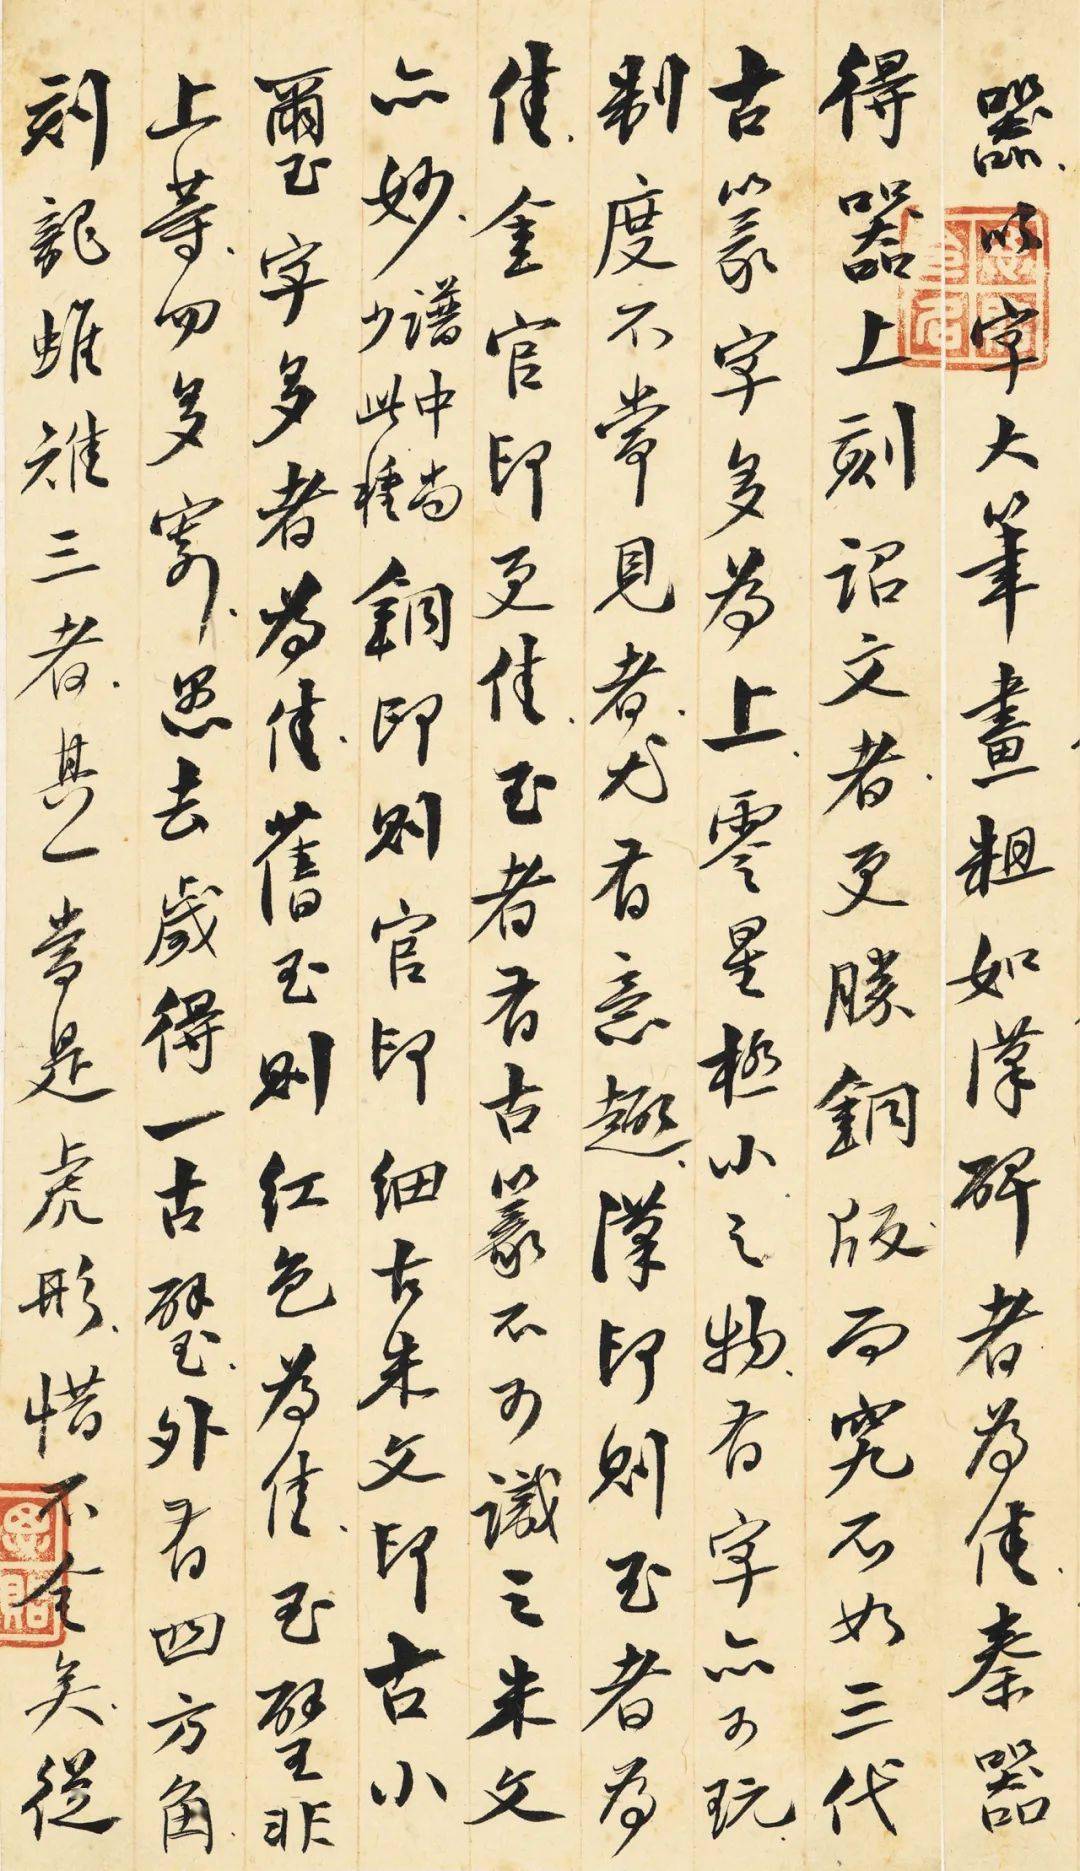 器以字大筆畫粗如漢碑者為佳秦器
得器上刻詔文者更勝銅版而究不如三代
古篆字多為上零星極小之物有字亦可玩
制度不常見者尤有意趣漢印則玉者為
佳金官印更佳玉者有古篆不可識之朱文
亦妙譜中尚少此種銅印則官印細古朱文印古小
璽字多者為佳舊玉則紅色為佳玉璧非
上等勿多寄愚去歲得一古璧外有四方角
刻龍蜼雖三者其一當是虎形惜不全矣從